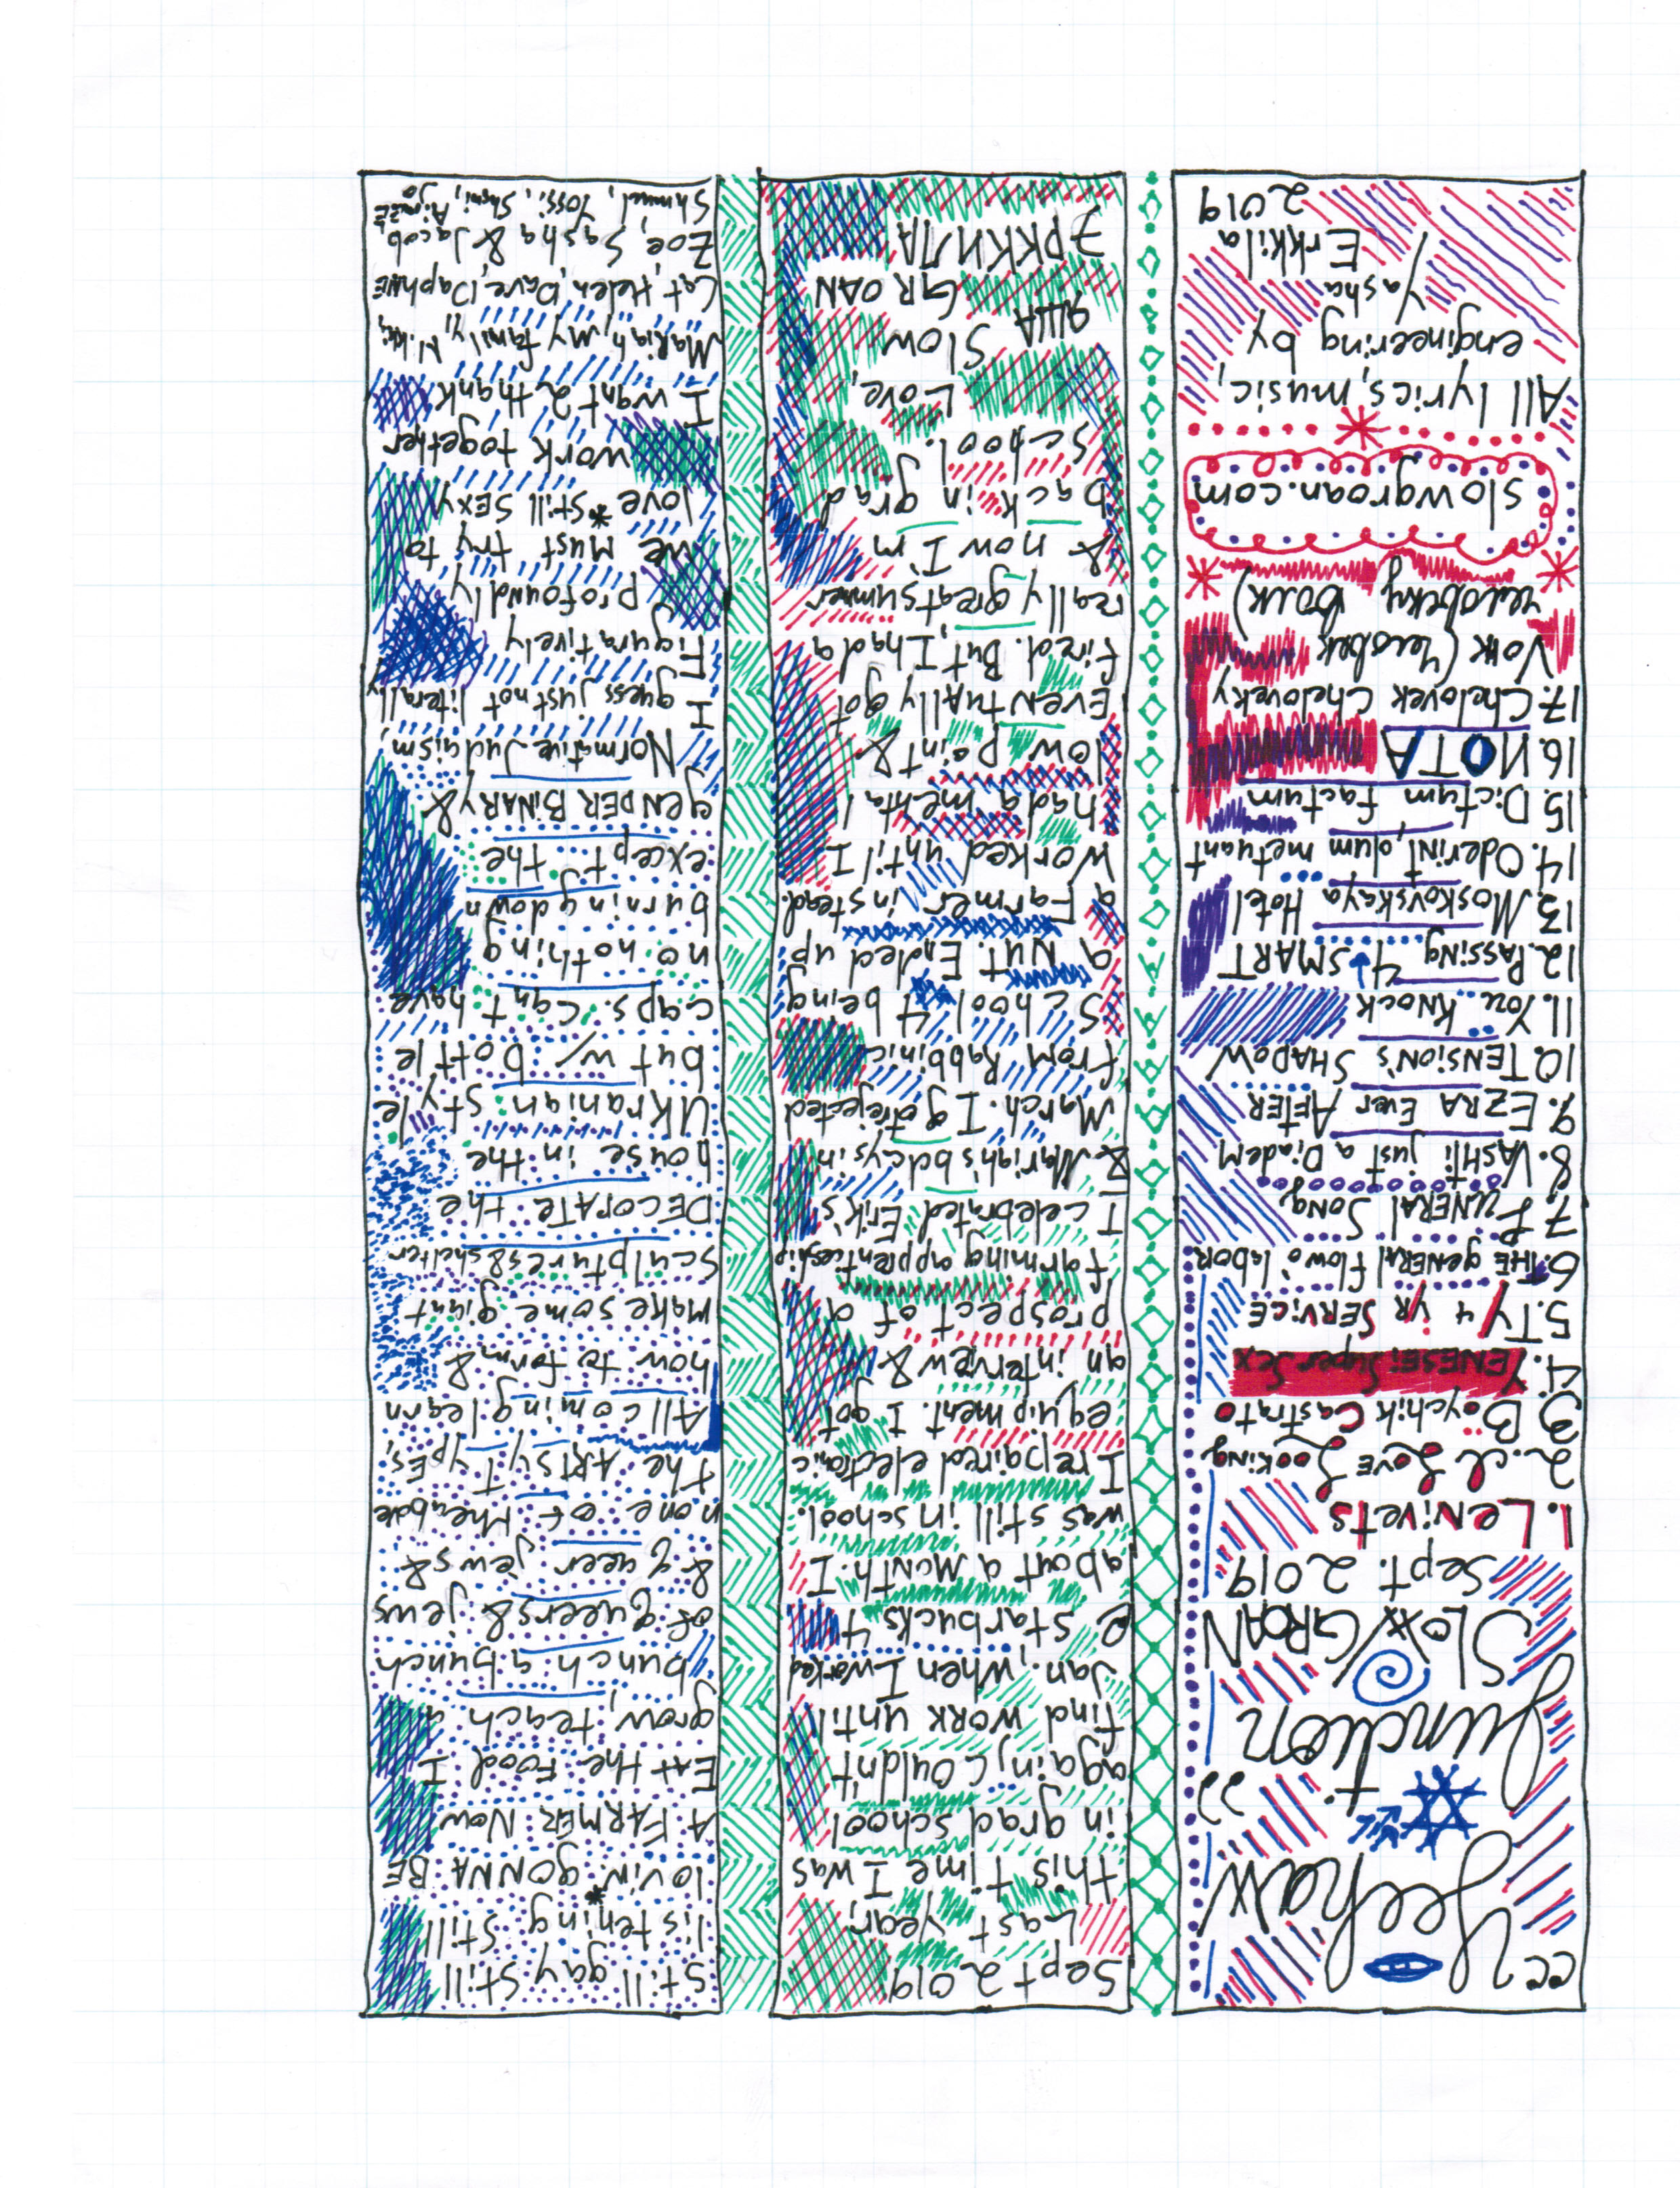 “Yeehaw
Junction”
SLOW GROAN
Sept. 2019
1. Lenivets
2. I Love Looking
3. Boychik Castrato
4. YENESEI Super Sex
5. TY 4 YR SERVICE
6. THE general flow o' labor
7. FUNERAL SONG
8. VASHTI just a Diadem
9. EZRA Ever AFTER
10. TENSION'S SHADOW
11. You KNOCK
12. PASSING 4 SMART
13. Moskovskaya Hotel
14. Oderint, dum metuant
15. Dictum factum
16. NOTA
17. Chelovek Cheloveky
Volk (Человек
человеку волк)
slowgroan.com
All lyrics, music,
engineering by
Yasha
Erkkila
2019
Sept 2019
Last Year,
this time I was
in grad school
again, couldn't
find work until
Jan., when I worked
@ Starbucks 4
about a month. I
was still in school.
I repaired electronic
equipment. I got
an interview &
prospect of a
farming apprenticeship
I celebrated Erik's
& Mariah's bdays in
March. I got rejected
from Rabbinic
School 4 being
a nut. Ended up
a Farmer instead.
Worked until I
had a mental
low point &
EVENTUALLY got
fired. But I had a
really great summer
& now I'm
back in grad
school.
Love,
Slow
ЯША
GROAN
ЭРККИЛА
Still gay still
listening still
lovin' gonna BE
A FARMER NOW
Eat the food I
grow, teach a
bunch a bunch
of queers & jews
& queer jews &
none of the above
the ARTSY TYPES,
All coming learn
how to farm &
make some giant
sculptures & shelter
DECORATE the
house in the
Ukranian style
but w/ bottle
caps. Can't have
no nothing
burning down
except the
GENDER BINARY &
Normative Judaism,
I guess just not literally
Figuratively
profoundly
we must try to
love *still SEXY
work together
I want 2 thank
Mariah, my family, Nikki,
Cat, Helen, Dave, Daphne
Zoe, Sasha & Jacob,
Shmuel, Yossi, Shani, Aimee
Jo